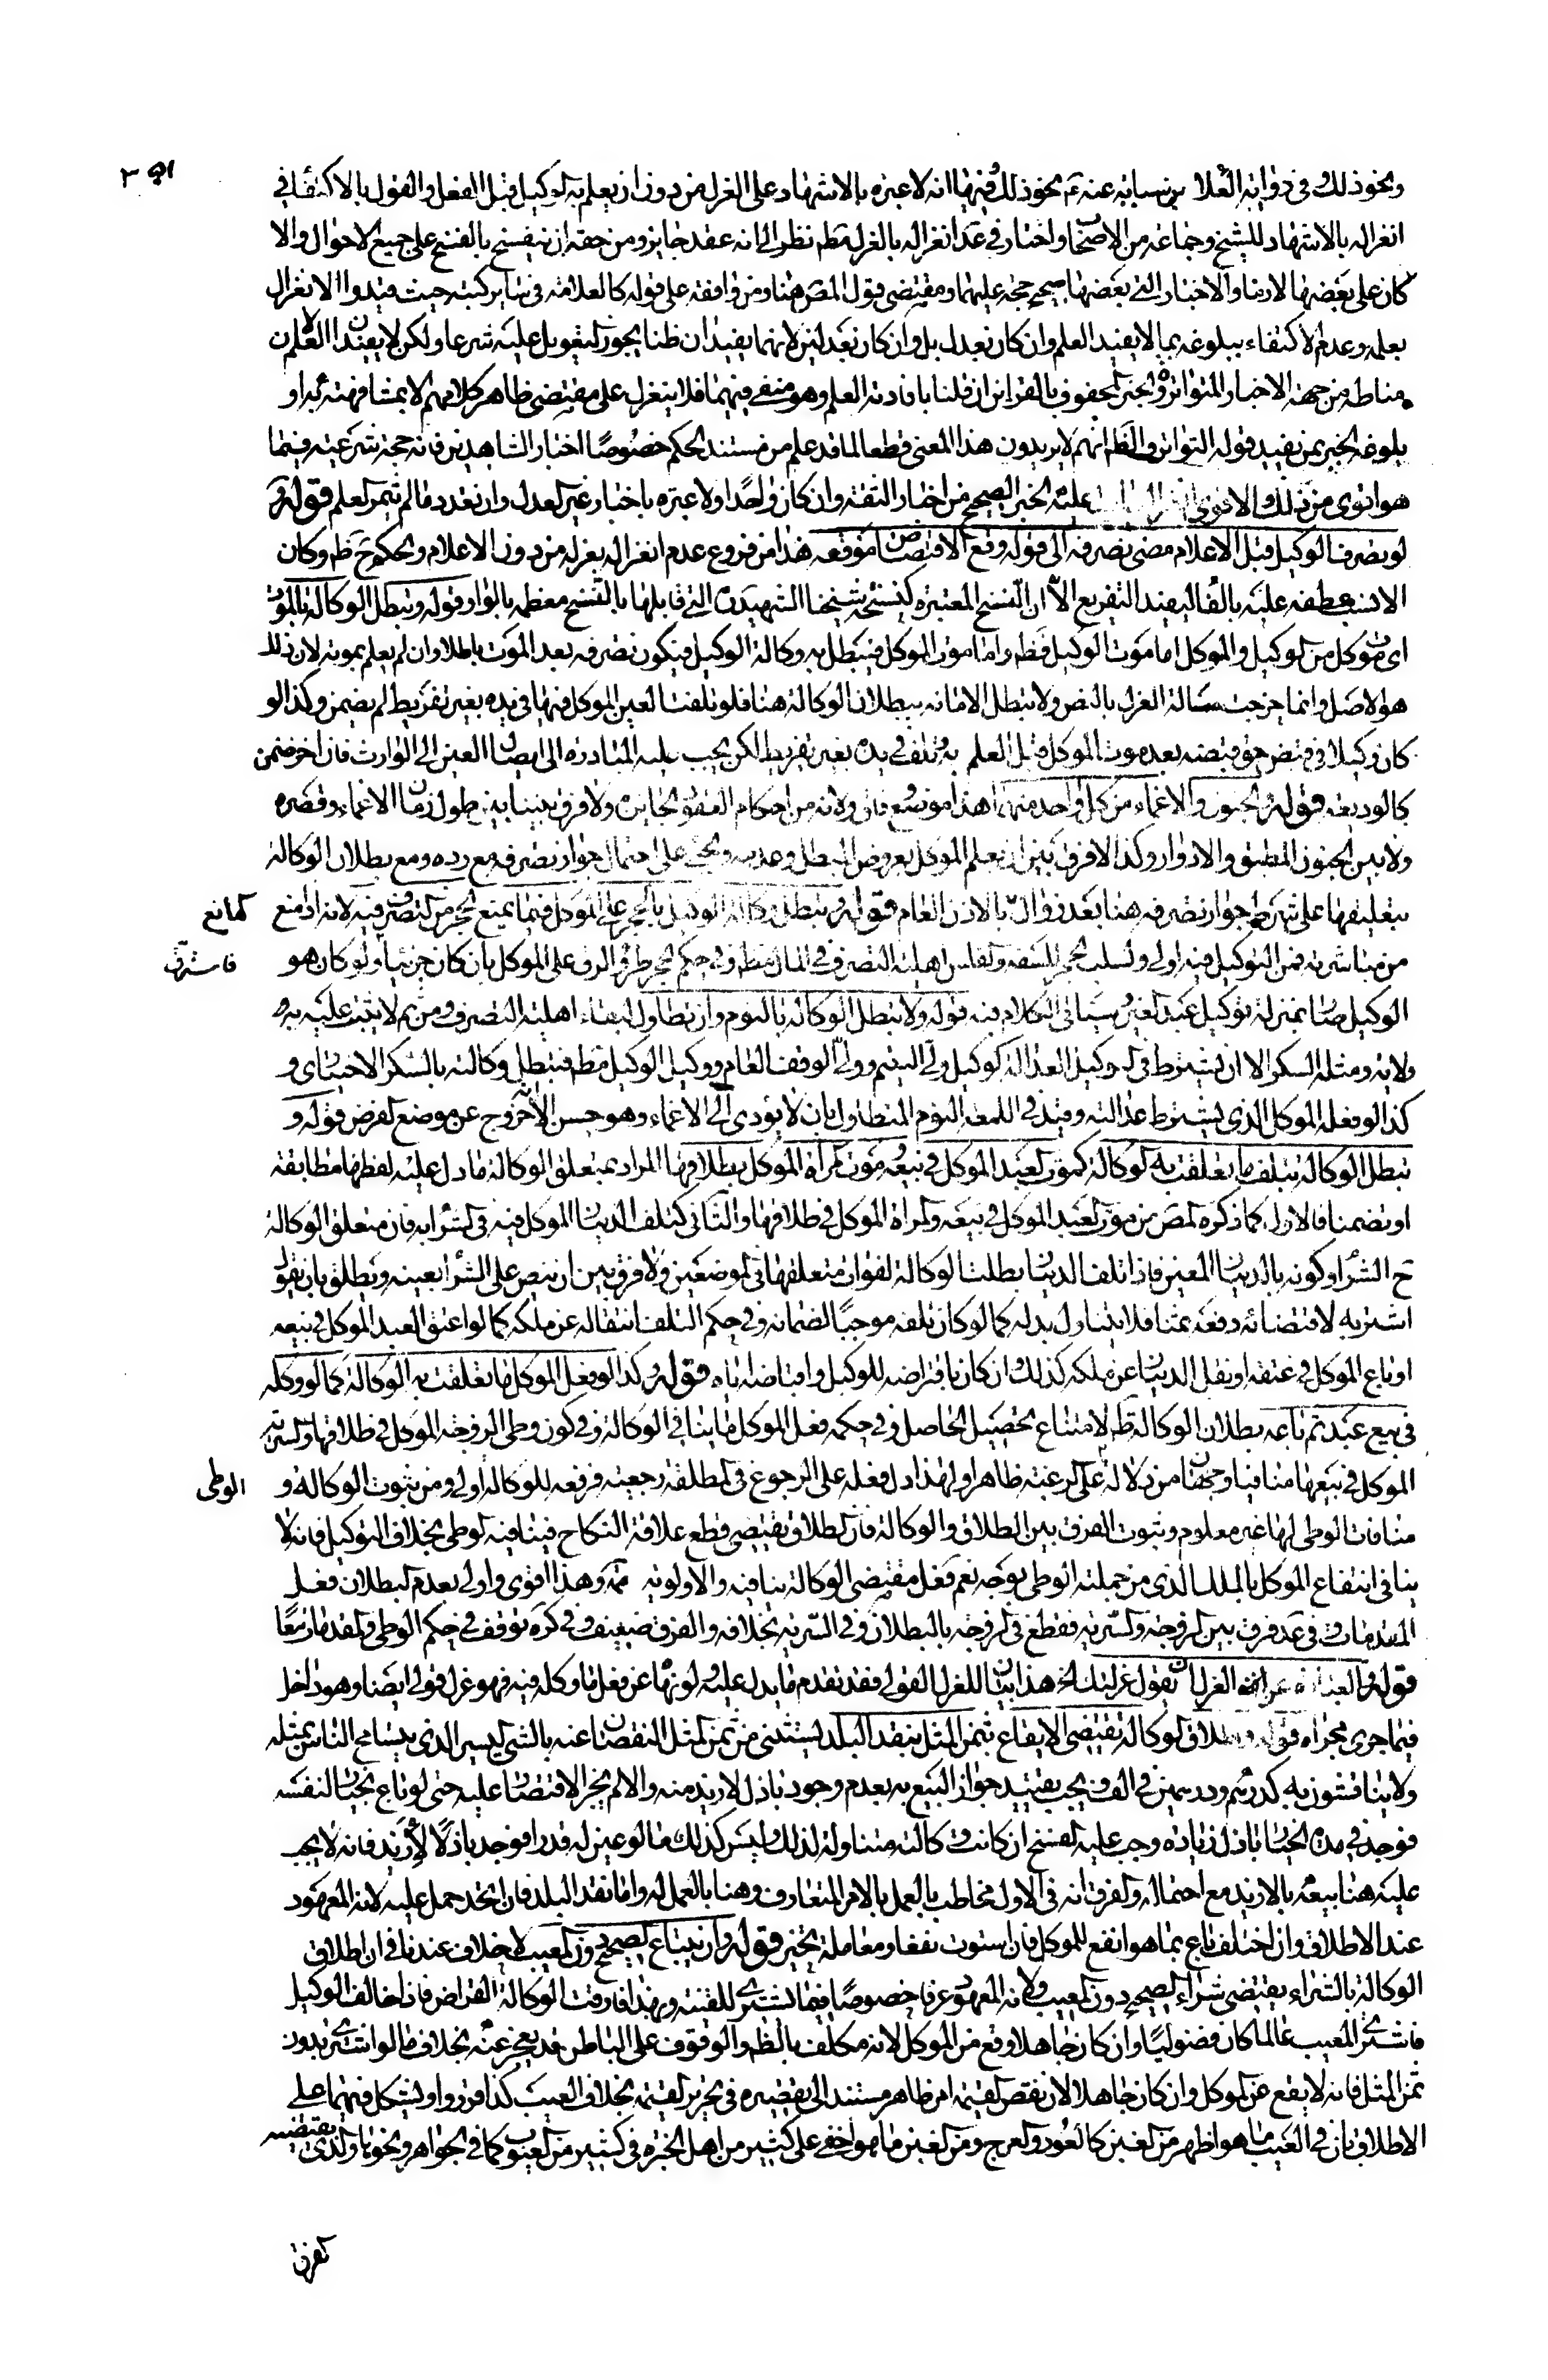 ونحو ذلك في رواية العلا بن سيابة عنه ع نحو ذلك وفيهما انه لا عبرة بالاشهاد على العزل من دون ان يعلم به الوكيل قبل الفعل والقول بالاكتفاء في
انعزاله بالاشهاد للشيخ وجماعة من الاصحاب واختار في عد انعزاله بالعزل مطم نظرا الى انه عقد جايز ومن حقه ان ينفسخ بالفسخ على جميع الاحوال والا
كان على بعضها لازما والاخبار التي بعضها صحيح حجة عليهما ومقتضى قول المص هنا ومن وافقه على قوله كالعلامة في ساير كتبه حيث قيدوا الانعزال
بعلمه وعدم الاكتفاء ببلوغه بما لا يفيد العلم وان كان بعدل بل وان كان بعدلين لانهما يفيدان ظنا يجوز التعويل عليه شرعا ولكن لا يفيدان العلم لان
مناطه من جهة الاخبار المتواتر والخبر المحفوف بالقراين ان قلنا بافادته العلم وهو منفي فيهما فلا ينعزل على مقتضى ظاهر كلامهم الا بمشافهته به او
بلوغه الخبر بمن يفيد قوله التواتر والظم انهم لا يريدون هذا المعنى قطعا لما قد علم من مستند الحكم خصوصًا اخبار الشاهدين فانه حجة شرعية فيما
هو اقوى من ذلك والاقوى عليه الخبر الصحيح من اخبار الثقة وان كان واحدًا ولا عبرة باخبار غير العدل وان تعدد ما لم يثمر العلم قوله و
لو تصرف الوكيل قبل الاعلام مضى تصرفه الى قوله وقع الاقتصاص موقعه هذا من فروع عدم انعزاله بعزله من دون الاعلام والحكم ح ظم وكان
الانسب عطفه عليه بالفاء ليفيد التفريع الا ان النسخ المعتبرة كنسخة شيخنا الشهيد ره التي قابلها بالنسخ معظمه بالواو قوله وتبطل الوكالة بالموت
اي موت كل من الوكيل والموكل اما موت الوكيل فظم واما موت الموكل فتبطل به وكالة الوكيل فيكون تصرفه بعد الموت باطلا وان لم يعلم بموته لان ذلك
هو الاصل وانما خرجت مسالة العزل بالنص ولا تبطل الامانة ببطلان الوكالة هنا فلو تلفت العين الموكل فيها في يده بغير تفريط لم يضمن وكذا لو
كان وكيلا في قبض حق فقبضه بعد موت الموكل قبل العلم به وتلف في يده بغير تفريط لكن يجب عليه المبادرة الى ايصال العين الى الوارث فان اخر ضمن
كالوديعة قوله والجنون والاغماء من كل واحد منهما هذا موضع وفاق ولانه من احكام العقود الجايزة ولا فرق بيننا بين طول زمان الاغماء وقصره
ولا بين الجنون المطبق والادوار وكذا لا فرق بين ان يعلم الموكل بعروض المبطل وعدمه ويجئ على احتمال جواز تصرفه مع رده ومع بطلان الوكالة
بتعليقها على شرط جواز تصرفه هنا بعد زوال بالاذن العام قوله وتبطل وكالة الوكيل بالحجر على الموكل فيما يمنع الحجر من التصرف فيه لانه اذا منع كمانع
من مباشرته فمن التوكيل فيه اولى ولسلب الحجر للسفه والفلس اهلية التصرف في المال مطم وفي حكم الحجر طرو الرق على الموكل بان كان حربيا ولو كان هو فاسترق
الوكيل صار بمنزلة توكيل عبد الغير وسياتي الكلام فيه قوله ولا تبطل الوكالة بالنوم وان تطاول لبقاء اهلية التصرف ومن ثم لا يثبت عليه به
ولاية ومثله السكر الا ان يشترط في الوكيل العدالة كوكيل ولي اليتيم وولي الوقف العام ووكيل الوكيل مطم فتبطل وكالته بالسكر الاختياري و
كذا لو فعله الموكل الذي يشترط عدالته وقيد في اللمعة النوم المتطاول بان لا يؤدي الى الاغماء وهو حسن الا انه خروج عن موضع الفرض قوله و
تبطل الوكالة بتلف ما تعلقت به الوكالة كموت العبد الموكل في بيعه وموت المراة الموكل بطلاقها المراد بمتعلق الوكالة ما دل عليه لفظها مطابقة
او تضمنا فالاول كما ذكره المص من موت العبد الموكل في بيعه والمراة الموكل في طلاقها والثاني كتلف الدينار الموكل فيه في الشراء به فان متعلق الوكالة
ح الشراء وكونه بالدينار المعين فاذا تلف الدينار بطلت الوكالة لفوات متعلقها في الموضعين ولا فرق بين ان ينص على الشراء بعينه ويطلق بان يقول
اشتر به لاقتضائه دفعه ثمنا فلا يتناول بدله كما لو كان تلفه موجبًا لضمانه وفي حكم التلف انتقاله عن ملكه كما لو اعتق العبد الموكل في بيعه
او باع الموكل في عتقه او نقل الدينار عن ملكه كذلك وان كان باقتراضه للوكيل واقباضه اياه قوله وكذا لو فعل الموكل ما تعلقت به الوكالة كما لو وكله
في بيع عبد ثم باعه بطلان الوكالة ظم لامتناع تحصيل الحاصل وفي حكمه فعل الموكل ما ينافي الوكالة وفي كون وطي الزوجة الموكل في طلاقها والسرية
الموكل في بيعها منافيا وجهان من دلالته على الرغبة ظاهرا ولهذا دل فعله على الرجوع في المطلقة رجعية فرفعه للوكالة اولى ومن ثبوت الوكالة و الوطى
منافات الوطي لها غير معلوم وثبوت الفرق بين الطلاق والوكالة فان الطلاق يقتضي قطع علاقة النكاح فينافيه الوطي بخلاف التوكيل فانه لا
ينافي انتفاع الموكل بالملك الذي من جملته الوطي بوجه نعم فعل مقتضى الوكالة ينافيه والاولوية ممم وهذا اقوى واولى بعدم البطلان فعل
المقدمات وفي عد فرق بين الزوجة والسرية فقطع في الزوجة بالبطلان وفي السرية بخلافه والفرق ضعيف وفي كره توقف في حكم الوطي والمقدمات معًا
قوله والعبارة عن العزل ان يقول عزلتك الخ هذا بيان للعزل القولي فقد تقدم ما يدل عليه لو نهاه عن فعل ما وكله فيه فهو عزل قولي ايضا وهو داخل
فيما جرى مجراه قوله واطلاق الوكالة تقتضي الابتياع بثمن المثل بنقد البلد يستثنى من ثمن المثل النقصان عنه بالشي اليسير الذي يتسامح الناس بمثله
ولا يناقشون به كدرهم ودرهمين في الف ويجب تقييد جواز البيع به بعدم وجود باذل لازيد منه والا لم يجز الاقتصار عليه حتى لو باع بخيار لنفسه
فوجد في مدة الخيار باذل زيادة وجب عليه الفسخ ان كانت وكالته متناولة لذلك وليس كذلك ما لو عين له قدرا فوجد باذلًا لازيد فانه لا يجب
عليه هنا بيعه بالازيد مع احتماله والفرق انه في الاول مخاطب بالعمل بالامر المتعارف وهنا بالعمل له واما نقد البلد فان اتحد حمل عليه لانه المعهود
عند الاطلاق وان اختلف باع بما هو انفع للموكل فان استوت نفعا ومعاملة تخير قوله وان يبتاع الصحيح دون المعيب لا خلاف عندنا في ان اطلاق
الوكالة بالشراء يقتضي شراء الصحيح دون المعيب ولانه المعهود عرفا خصوصًا فيما يشترى للقنية وبهذا فارقت الوكالة القراض فاذا خالف الوكيل
فاشترى المعيب عالما كان فضوليًا وان كان جاهلا وقع من الموكل لانه مكلف بالظم والوقوف على الباطن قد يعجز عنه بخلاف ما لو اشترى بدون
ثمن المثل فانه لا يقع عن الموكل وان كان جاهلا لان نقص القيمة امر ظاهر مستند الى تقصيره في تحرير القيمة بخلاف العيب كذا قرروا ويشكل فيهما على
الاطلاق بان في العيب ما هو اظهر من الغبن كالعور والعرج ومن الغبن ما هو اخفى على كثير من اهل الخبرة في كثير من العيوب كما في الجواهر ونحوها والذي يقتضيه